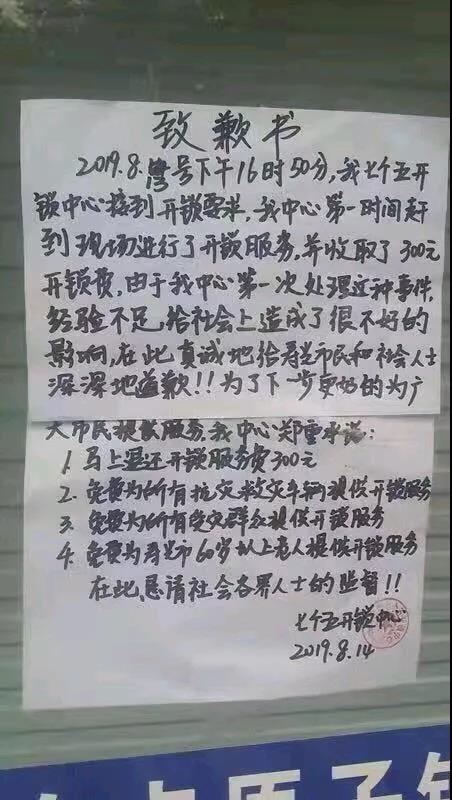 致歉书
2019.8.号下午16时50分,我七个五开
锁中心接到开锁要求,我中心第一时间赶
到现场进行了开锁服务,并收取了300元
开锁费,由于我中心第一次处理这种事件,
经验不足,给社会上造成了很不好的
影响,在此真诚地给寿光市民和社会人士
深深地道歉!!为了下一步更好的为广
大市民提供服务,我中心郑重承诺:
1. 马上退还开锁服务费300元
2. 免费为所有抗灾救灾车辆提供开锁服务
3. 免费为所有受灾群众提供开锁服务
4. 免费为寿光市60岁以上老人提供开锁服务
在此恳请社会各界人士的监督!!
七个五开锁中心
2019.8.14